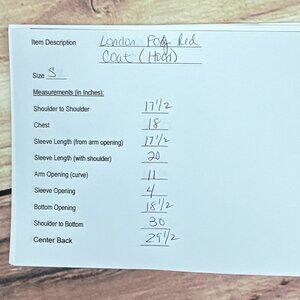 Item Description London Fog Red
Coat (Hood)
Size S
Measurements (in Inches):
Shoulder to Shoulder 17 1/2
Chest 18
Sleeve Length (from arm opening) 17 1/2
Sleeve Length (with shoulder) 20
Arm Opening (curve) 11
Sleeve Opening 4
Bottom Opening 18 1/2
Shoulder to Bottom 30
Center Back 29 1/2